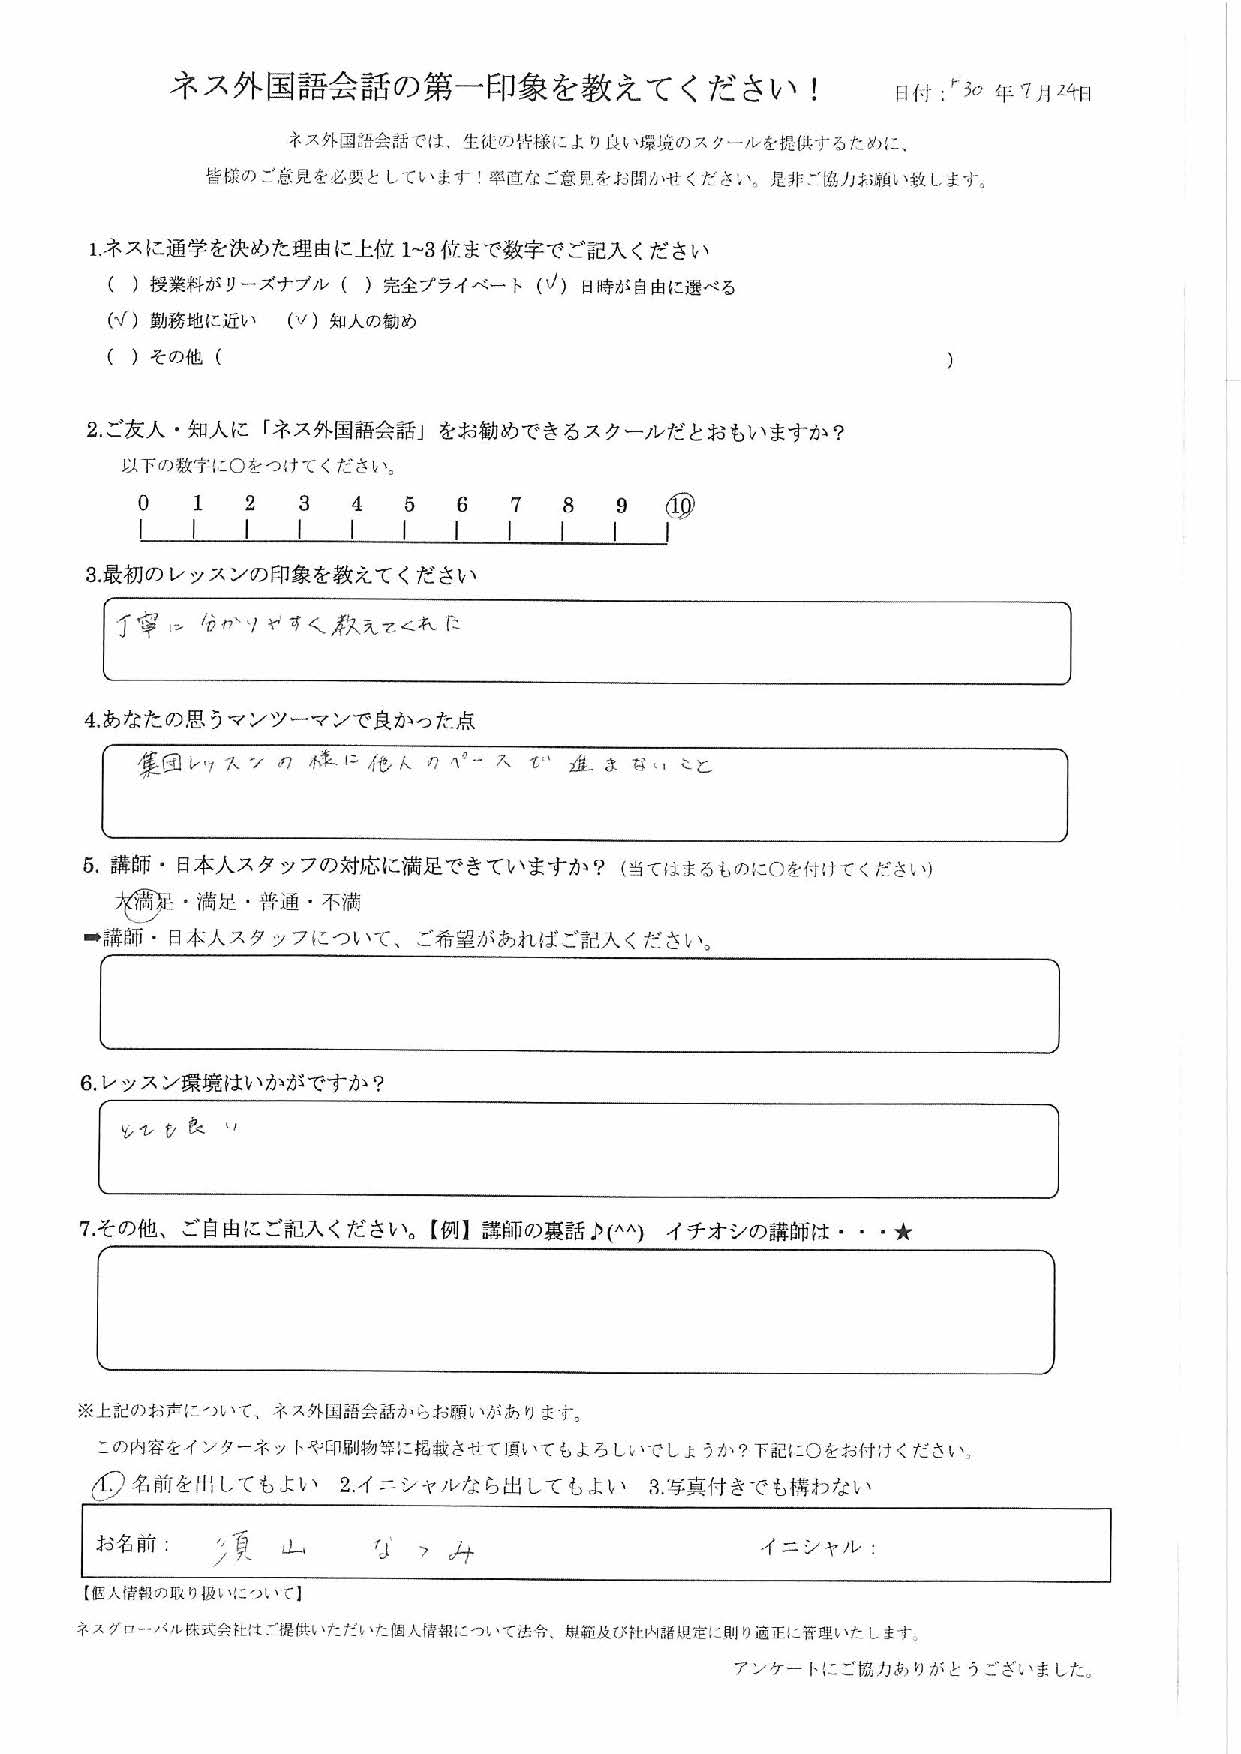 ネス外国語会話の第一印象を教えてください！
日付：H30 年 9月 24日
ネス外国語会話では、生徒の皆様により良い環境のスクールを提供するために、
皆様のご意見を必要としています！率直なご意見をお聞かせください。是非ご協力お願い致します。
1.ネスに通学を決めた理由に上位 1~3 位まで数字でご記入ください
（ ）授業料がリーズナブル（ ）完全プライベート（✓）日時が自由に選べる
（✓）勤務地に近い （✓）知人の勧め
（ ）その他（ ）
2.ご友人・知人に「ネス外国語会話」をお勧めできるスクールだとおもいますか？
以下の数字に〇をつけてください。
0 1 2 3 4 5 6 7 8 9 10
3.最初のレッスンの印象を教えてください
丁寧に 分かりやすく教えてくれた
4.あなたの思うマンツーマンで良かった点
集団レッスンの様に他人のペースで進まないこと
5. 講師・日本人スタッフの対応に満足できていますか？（当てはまるものに〇を付けてください）
大満足・満足・普通・不満
➡講師・日本人スタッフについて、ご希望があればご記入ください。
6.レッスン環境はいかがですか？
とても良い
7.その他、ご自由にご記入ください。【例】講師の裏話♪(^^) イチオシの講師は・・・★
※上記のお声について、ネス外国語会話からお願いがあります。
この内容をインターネットや印刷物等に掲載させて頂いてもよろしいでしょうか？下記に〇をお付けください。
1.名前を出してもよい 2.イニシャルなら出してもよい 3.写真付きでも構わない
お名前： 須山 なつみ イニシャル：
【個人情報の取り扱いについて】
ネスグローバル株式会社はご提供いただいた個人情報について法令、規範及び社内諸規定に則り適正に管理いたします。
アンケートにご協力ありがとうございました。